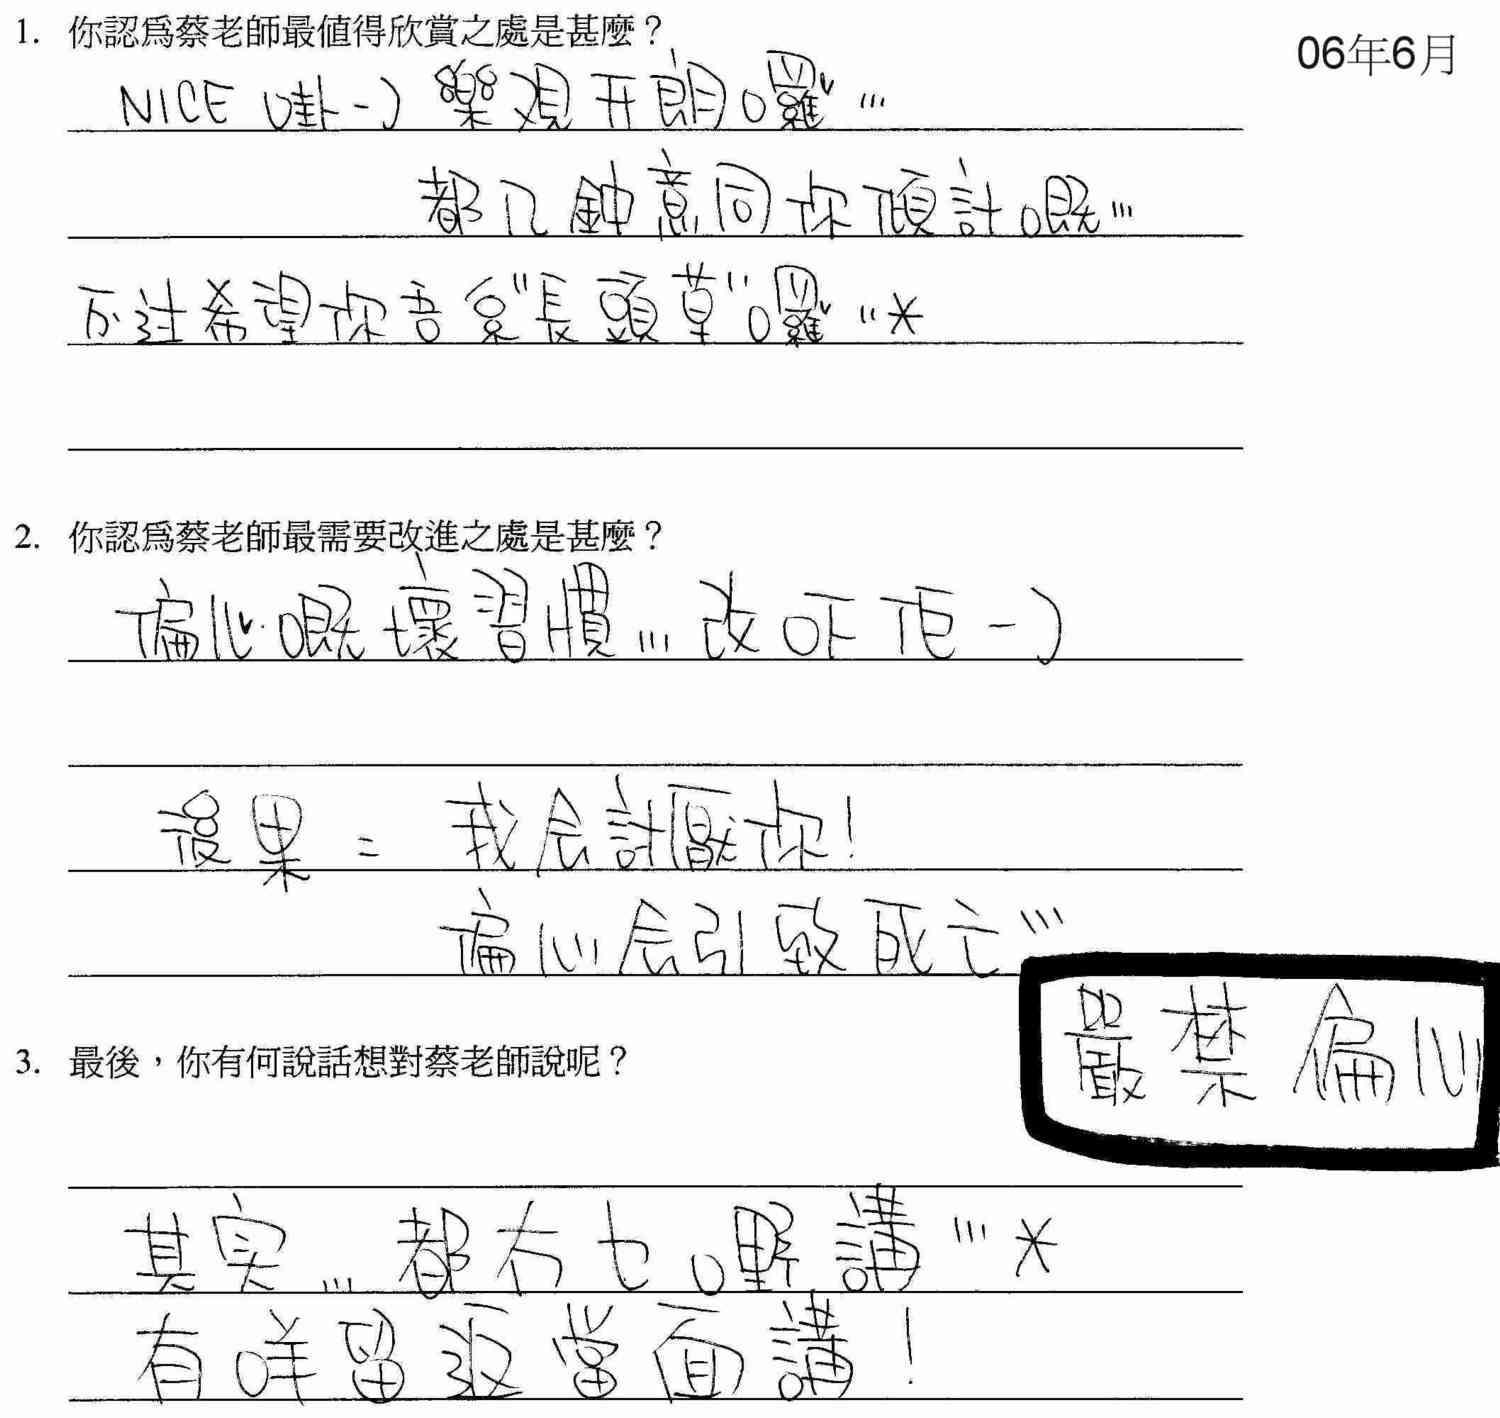 1. 你認為蔡老師最值得欣賞之處是甚麼？
06年6月
NICE 啩~) 樂观开朗囉…
都几鍾意同你傾計嘅…
不过希望你吾系"長頭草"囉…*
2. 你認為蔡老師最需要改進之處是甚麼？
偏心嘅壞習慣…改吓佢~)
後果 = 我会討厭你!
偏心会引致死亡…
嚴禁偏心
3. 最後，你有何說話想對蔡老師說呢？
其实…都冇乜嘢講…*
有咩留返當面講!